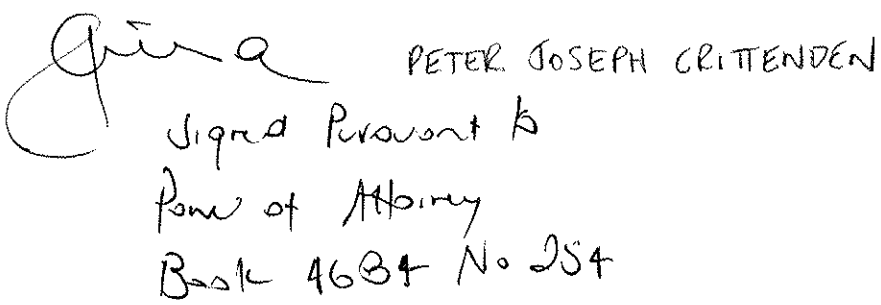 PETER JOSEPH CRITTENDEN
Signed Pursuant to
Power of Attorney
Book 4684 No 254